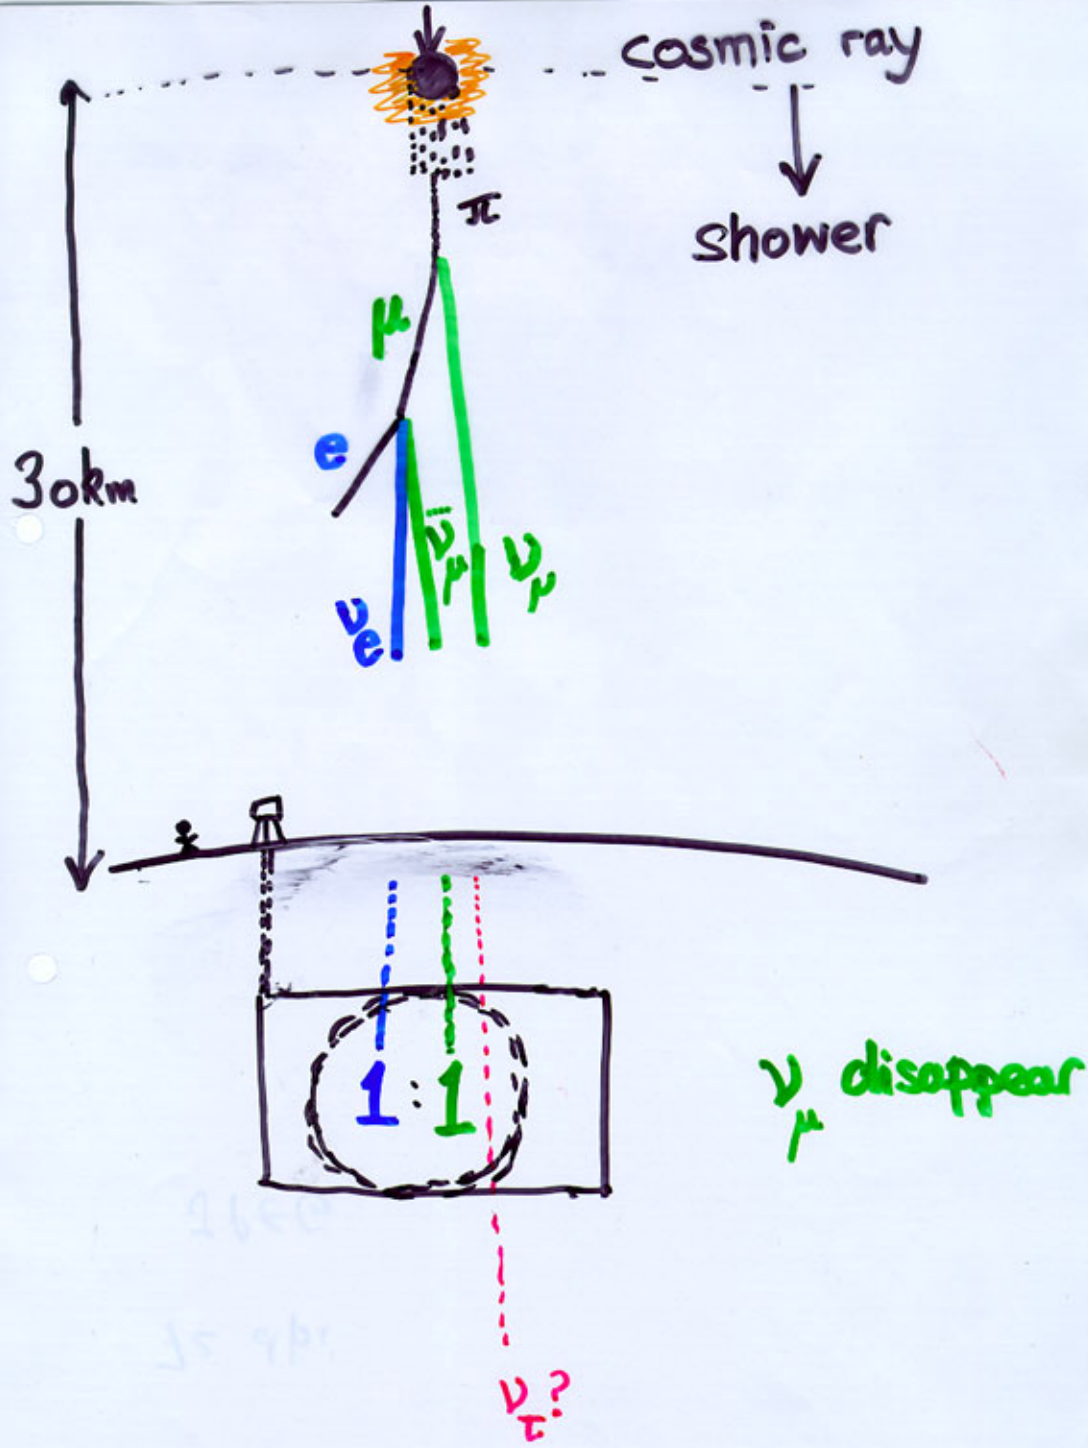 cosmic ray
shower
π
μ
30km
e
ν̄μ
νμ
νe
1:1
νμ disappear
ντ?